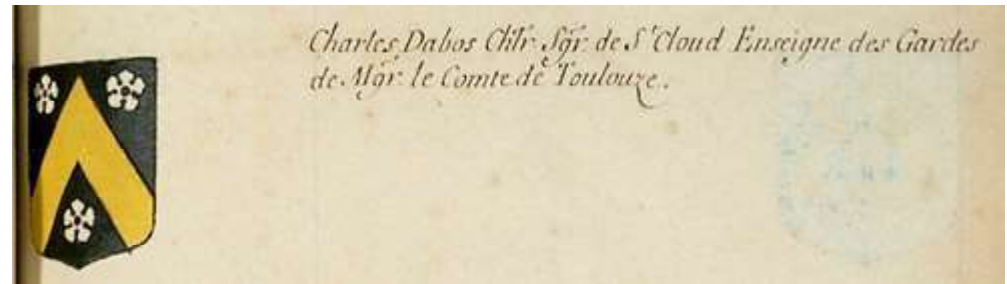 Charles Dabos Chlr. Sgr. de St Cloud Enseigne des Gardes
de Mgr. le Comte de Toulouze.